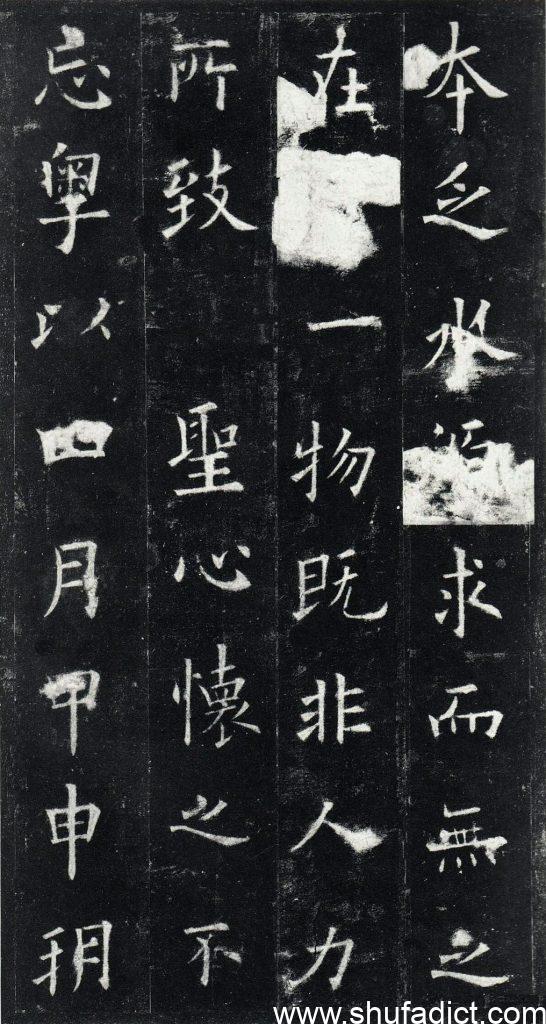 本乏水源求而無之
在一物既非人力
所致 聖心懷之不
忘粤以四月甲申朔
www.shufadict.com